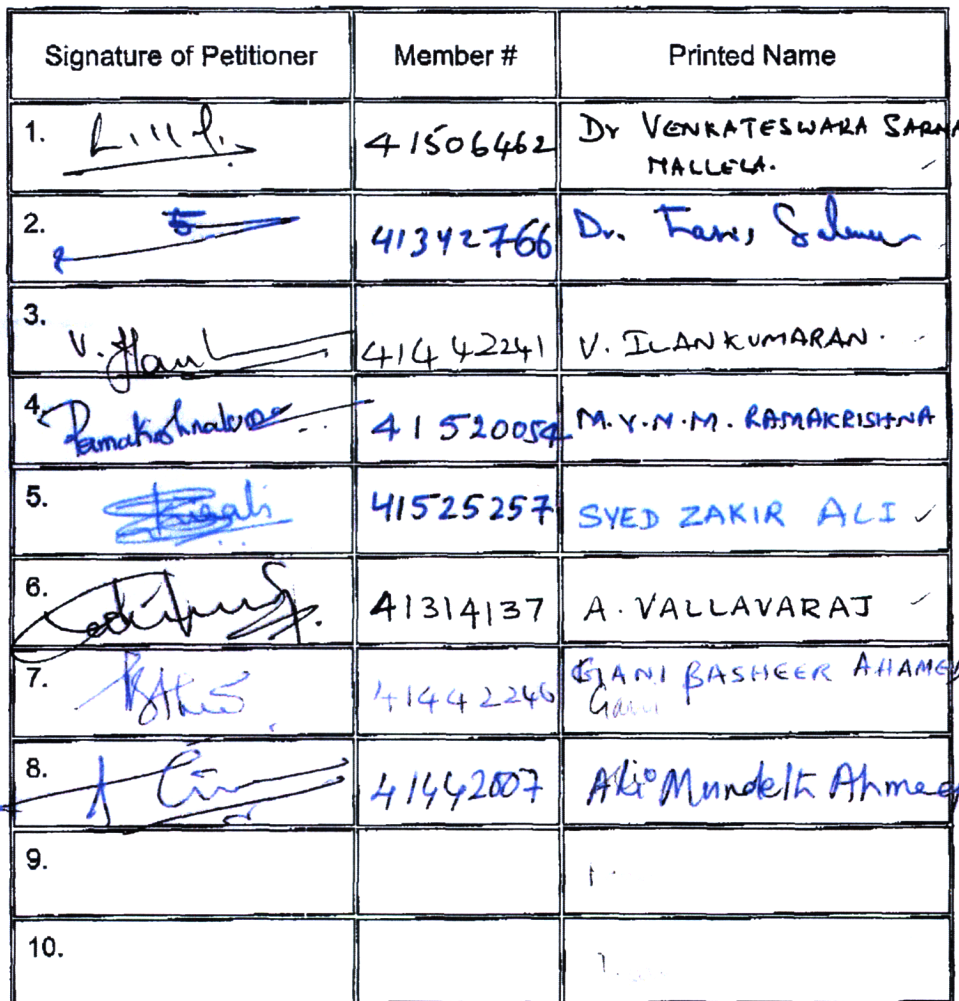 Signature of Petitioner Member # Printed Name
1. 41506462 Dr VENKATESWARA SARMA
MALLELA.
2. 41342766 Dr.
3. V. 41442241 V. ILANKUMARAN.
4. 41520054 M.Y.N.M. RAMAKRISHNA
5. 41525257 SYED ZAKIR ALI
6. 41314137 A. VALLAVARAJ
7. 41442246 GANI BASHEER AHAMED
Gani
8. 41442007 Ahmed
9.
10.